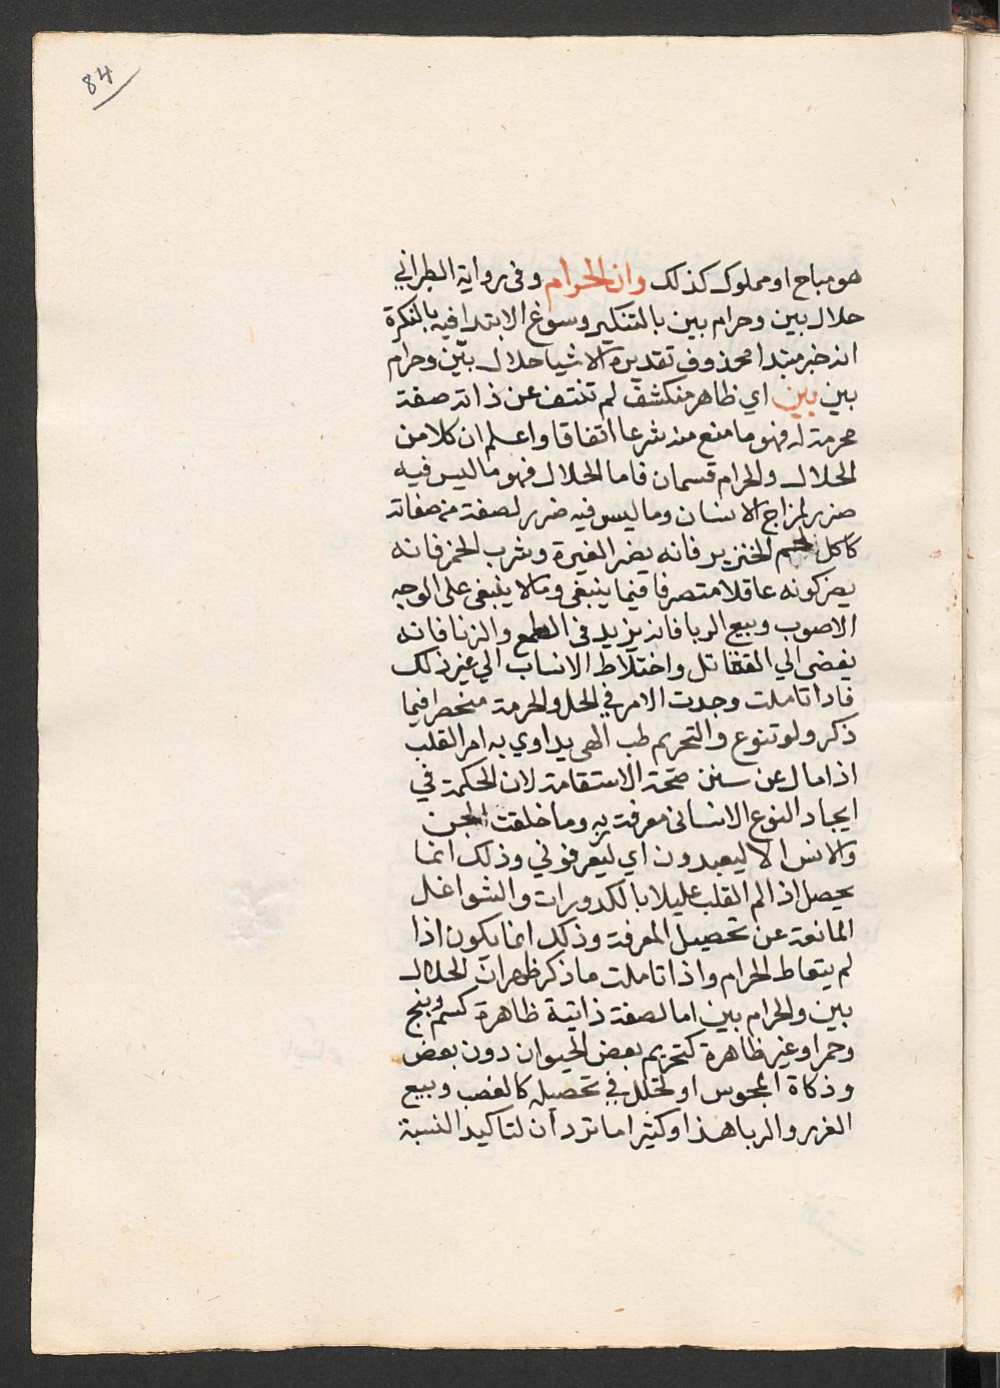 84
هو مباح او مملوك كذلك وان الحرام وفى رواية الطبراني
حلال بين وحرام بين بالتنكير وسوغ الابتدا فيه بالنكرة
انه خبر مبتدا محذوف تقديره الاشيا حلال بيّن وحرام
بين بين اي ظاهر منكشف لم تنتف عن ذاته صفة
محرمة له فهو ما منع منه شرعا اتفاقا واعلم ان كلا من
الحلال والحرام قسمان فاما الحلال فهو ما ليس فيه
ضرر لمزاج الانسان وما ليس فيه ضرر لصفة من صفاته
كاكل لحم الخنزير فانه يضر الغيرة وشرب الخمر فانه
يضر كونه عاقلا متصرفا فيما ينبغي وما لا ينبغى على الوجه
الاصوب وبيع الربا فانه يزيد فى الطمع والزنا فانه
يفضى الي التقاتل واختلاط الانساب الي غير ذلك
فاذا تاملت وجدت الامر في الحل والحرمة منحصرا فيما
ذكر ولو تنوع والتحريم طب الهى يداوي به امر القلب
اذا مال عن سنن صحة الاستقامة لان الحكمة في
ايجاد النوع الانسانى معرفة ربه وما خلقت الجن
والانس الا ليعبدون اي ليعرفوني وذلك انما
يحصل اذا لم القلب عليلا بالكدورات والشواغل
المانعة عن تحصيل المعرفة وذلك انما يكون اذا
لم يتعاط الحرام واذا تاملت ما ذكر ظهر ان الحلال
بين والحرام بين اما لصفة ذاتية ظاهرة كسم وبنج
وخمر او غير ظاهرة كتحريم بعض الحيوان دون بعض
وذكاة المجوس او لخلل في تحصيله كالغصب وبيع
الغرر والربا هذا وكثيرا ما ترد ان لتاكيد النسبة